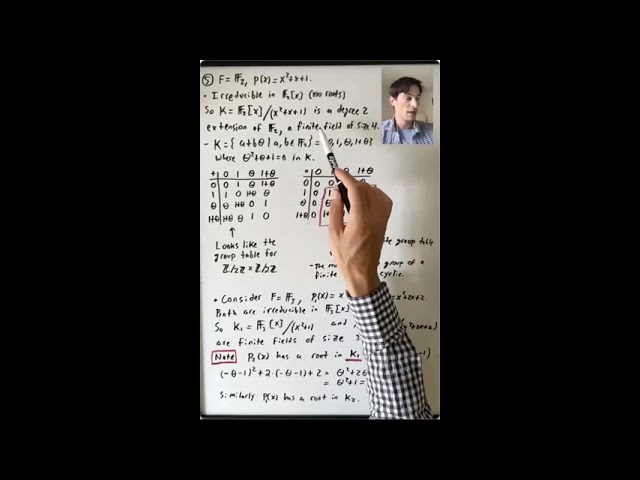 ⑤ F = 𝔽₂, p(x) = x²+x+1.
• Irreducible in 𝔽₂[x] (no roots)
So K = 𝔽₂[x]/(x²+x+1) is a degree 2
extension of 𝔽₂, a finite field of size 4.
- K = { a+bθ | a, b ∈ 𝔽₂} = 1, θ, 1+θ}
where θ²+θ+1=0 in K.
+ 0 1 θ 1+θ
0 0 1 θ 1+θ
1 1 0 1+θ θ
θ θ 1+θ 0 1
1+θ 1+θ θ 1 0
• 0 1
0 0 0
1 0 1
θ 0 θ
1+θ 0
↑
Looks like the
group table for
ℤ/2ℤ × ℤ/2ℤ
the group table
- The group of a
finite cyclic.
• Consider F = 𝔽₃, p₁(x) = x = x²+2x+2.
Both are irreducible in 𝔽₃[x]
So K₁ = 𝔽₃[x]/(x²+1) and x²+2x+2)
are finite fields of size 3
Note P₂(x) has a root in K₁ -1)
(-θ-1)²+2·(-θ-1)+2 = θ²+2θ
= θ²+1 =
Similarly P₁(x) has a root in K₂.